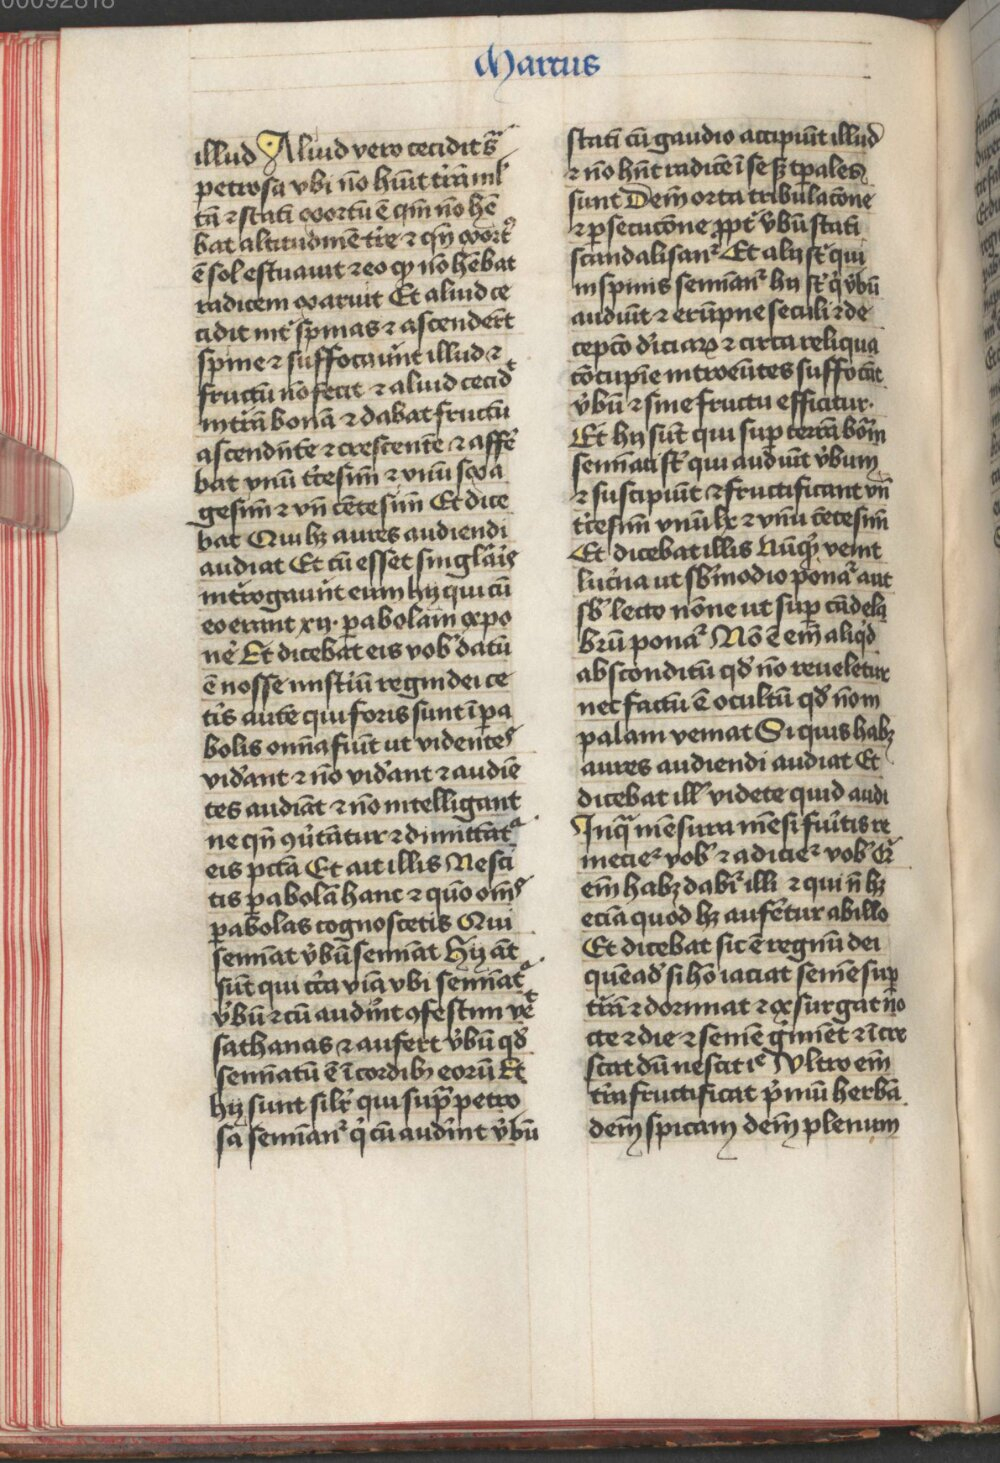 00092818
Marcus
illud Aliud vero cecidit sᷓ
petrosa vbi nō hūit t̄rā ml
tā ⁊ stati exortū ē qm̄ nō hē
bat altitudinē t̄re ⁊ qn̄ exort⁹
ē sol estuauit ⁊ eo qꝫ nō hēbat
radicem exaruit Et aliud ce
cidit int̄ spinas ⁊ ascendert̄
spine ⁊ suffocauūt illud ⁊
fructū nō fecit ⁊ aliud cecid͛
in t̄rā bonā ⁊ dabat fructū
ascendn̄te ⁊ crescente ⁊ affē
bat vnū t̄cesim̄ ⁊ vnū sexa
gesim̄ ⁊ vn̄ cētesim̄ Et dice
bat Qui hꝫ aures audiendi
audiat Et cū esset singlāis
int̄rogauūt eum hij qui cū
eo erant xij· ꝑabolam expo
nē Et dicebat eis vob̄ datū
ē nosse mist̄iū regni dei ce
t̄is autē qui foris sunt ī ꝑa
bolis om̄a fiūt ut videntes
vid̄ant ⁊ nō vid̄ant ⁊ audiē
tes audiāt ⁊ nō intelligant
ne qn̄ ꝯūtātur ⁊ dimittāt᷑
eis pctā Et ait illis Nesci
tis ꝑabolā hanc ⁊ quō om̄s
ꝑabolas cognoscetis Qui
semīat v̄bū semīat Hij āt
sūt qui cīca viā vbi semīat᷑
v̄bū ⁊ cū audīt ꝯfestim vēt
sathanas ⁊ aufert v̄bū qd̄
semīatū ē ī cordibꝫ eorū Et
hij sunt silr̄ qui supᷓ petro
sa semīan᷑ q̄ cū audīnt v̄bū
stati cū gaudio accipiūt illud
⁊ nō hn̄t radicē ī se sꝫ tꝑales
sunt Deīn orta tribulac̄one
⁊ ꝑsecuc̄one ꝓpt̄ v̄bū stati
scandalisan᷑ Et alij st̄ qui
in spinis semīan᷑ hij st̄ q̄ v̄bū
audiūt ⁊ erūpne seculi ⁊ de
cepc̄o diciarꝫ ⁊ circa reliqua
cōcupīe introeūtes suffocāt
v̄bū ⁊ sine fructu efficitur·
Et hij sūt qui suꝑ terrā bōm
semīati st̄ qui audiūt v̄bum
⁊ suscipiūt ⁊ fructificant vn̄
t̄cesim̄ vnū lx ⁊ vnū cētesim̄
Et dicebat illis Nūqd̄ venit
lūcna ut sb̄ modio ponā᷑ aut
sb̄ lecto nōne ut suꝑ cādela
brū ponā᷑ Nō ē em̄ aliqd̄
absconditū qd̄ nō reueletur
nec factū ē ocultū qd̄ nō in
palam veniat Si quis habꝫ
aures audiendi audiat Et
dicebat ill̄ videte quid audi
In qᷓ mēsura mēsi fuītis re
metie᷑ vob̄ ⁊ adicie᷑ vob̄ Q̄
em̄ habꝫ dabi᷑ illi ⁊ qui n̄ hꝫ
eciā quod hꝫ aufētur ab illo
Et dicebat sic ē regnū dei
quēad̄ si hō iaciat semē suꝑ
t̄rā ⁊ dormiat ⁊ exsurgat no
cte ⁊ die ⁊ semē ḡmīet ⁊ īcre
scat dū nescit ic̄ Vltro em̄
t̄ra fructificat p̄mū herbā
deīn spicam deīn plenum